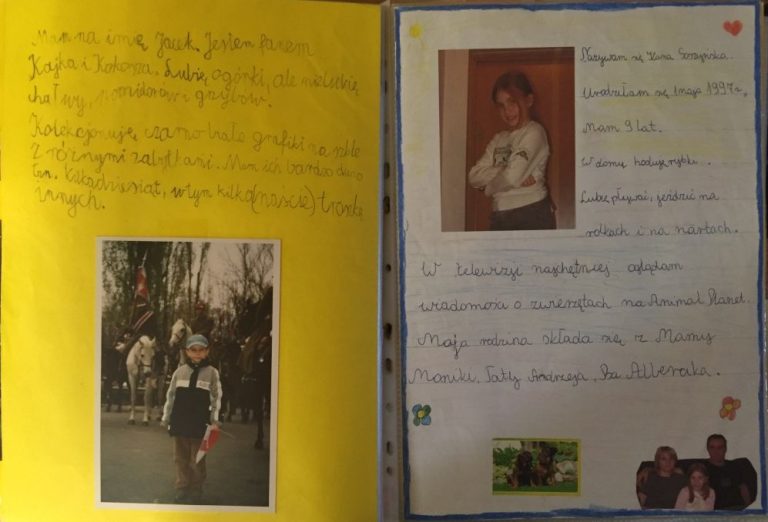 Mam na imię Jacek. Jestem fanem
Kajka i Kokosza. Lubię ogórki, ale nie lubię
chałwy, pomidorów i grzybów.
Kolekcjonuję czarno-białe grafiki na szkle
z różnymi zabytkami. Mam ich bardzo dużo
tzn. kilkadziesiąt, w tym kilka(naście) trochę
innych.
Nazywam się Hania
Urodziłam się 1 maja 1997 r.,
Mam 9 lat.
W domu hoduję rybki.
Lubię pływać, jeździć na
rolkach i na nartach.
W telewizji najchętniej oglądam
wiadomości o zwierzętach na Animal Planet.
Moja rodzina składa się z Mamy
Moniki, Taty Andrzeja, Psa